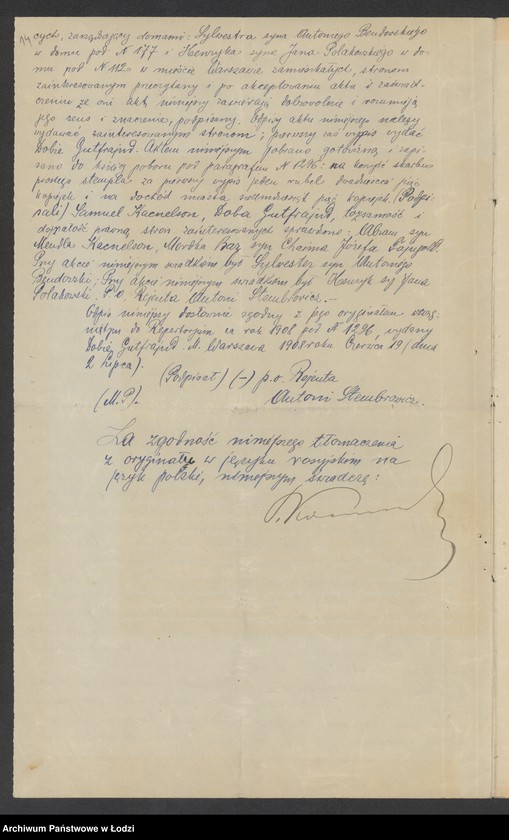 14 cych, zarządzający domami: Sylwestra syna Antoniego Bendorskiego
w domu pod N 177 i Henryka syna Jana Polakowskiego w do-
mu pod N 112 w mieście Warszawie zamieszkałych, stronom
zainteresowanym przeczytany i po akceptowaniu aktu i zaświad-
czeniu że oni akt niniejszy zawierają dobrowolnie i rozumieją
jego sens i znaczenie, podpisany. Odpisy aktu niniejszego należy
wydawać zainteresowanym stronom; pierwszy zaś wypis wydać
Dobie Gutfrajnd. Aktem niniejszym pobrano gotówizną i zapi-
sano do księgi poboru pod paragrafem N 1296: na korzyść skarbu
prostego stempla za pierwszy wypis jeden rubel dwadzieścia pięć
kopiejek i na dochód miasta siedemdziesiąt pięć kopiejek. (Podpi-
sali) Samuel Kacnelson, Doba Gutfrajnd, tożsamość i
zdolność prawną stron zainteresowanych sprawdzono: Abram syn
Mendla Kacnelson, Mordka Baz syn Chaima Józefa
Przy akcie niniejszym świadkiem był Sylwester syn Antoniego
Bendorski; Przy akcie niniejszym świadkiem był Henryk syn Jana
Polakowski. P.o. Rejenta Antoni Stembrowicz.-
Odpis niniejszy dosłownie zgodny z jego oryginałem
do Repertorjum za rok 1908 pod N 1296, wydany
Dobie Gutfrajnd. M. Warszawa 1908 roku Czerwca 19 / dnia
2 Lipca).
(Podpisał) (-) p.o. Rejenta
(M.P.). Antoni Stembrowicz.
Za zgodność niniejszego tłomaczenia
z oryginału w języku rosyjskim na
język polski, niniejszym świadczę:
Archiwum Państwowe w Łodzi